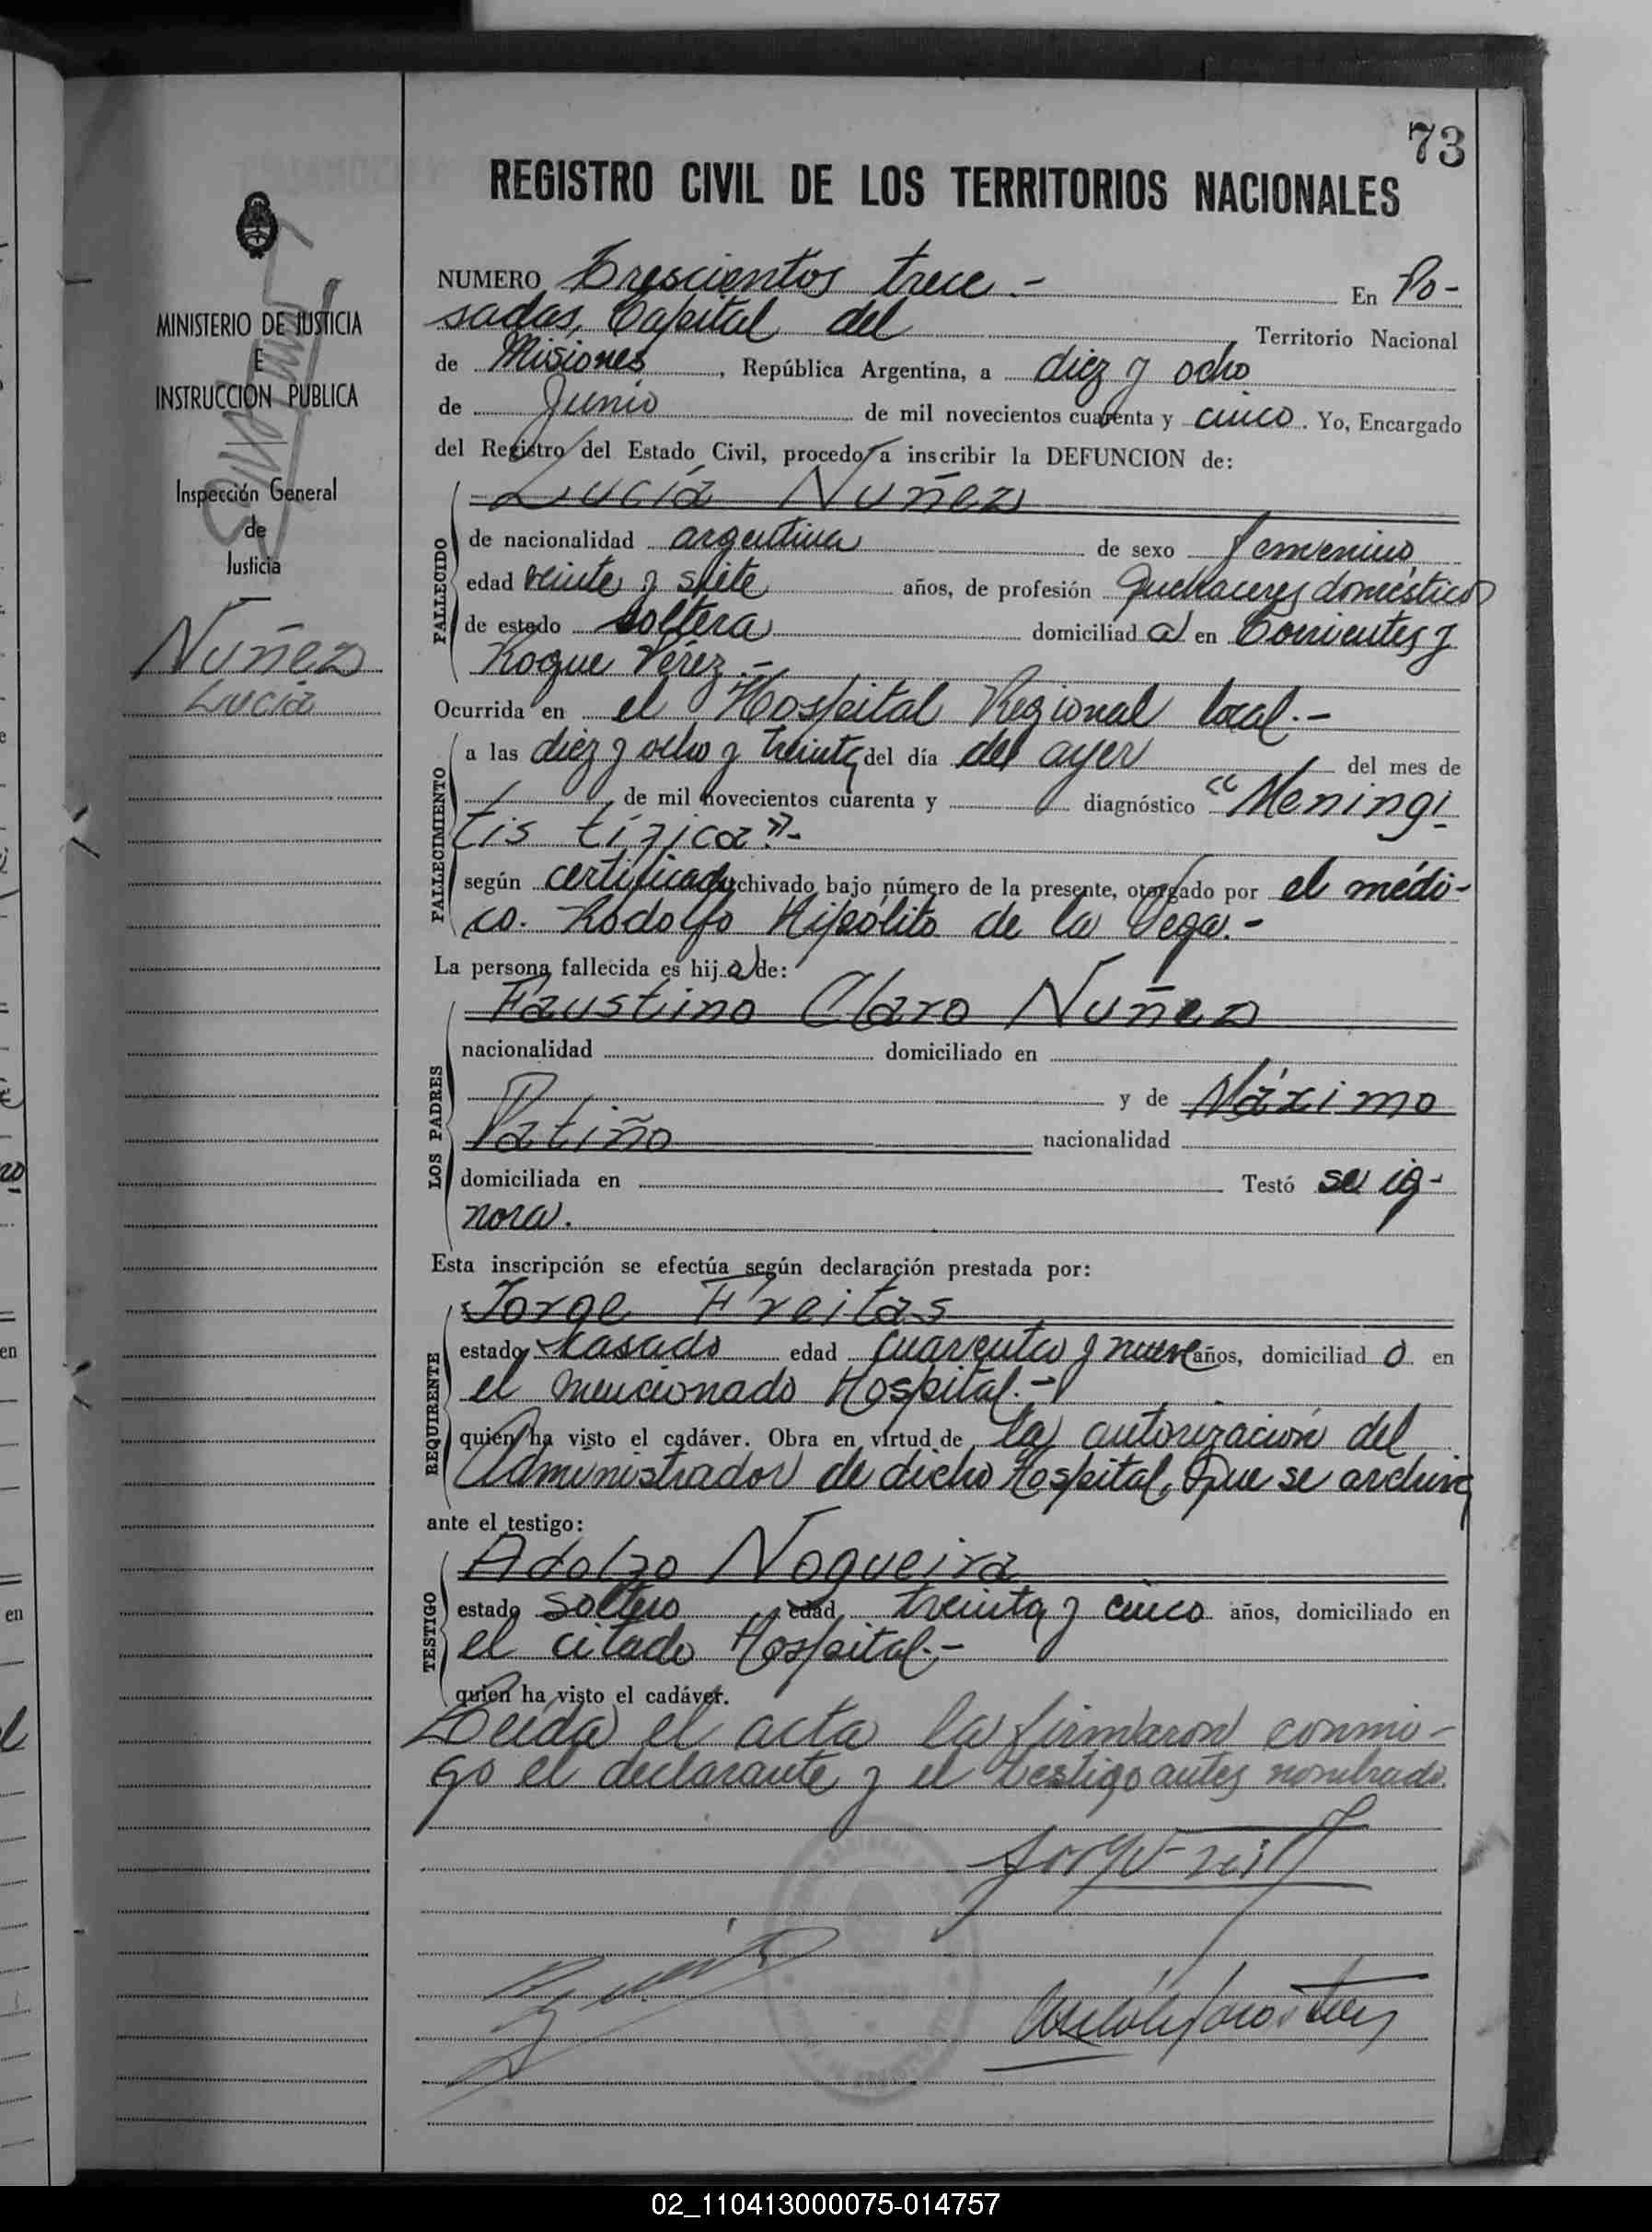 73
REGISTRO CIVIL DE LOS TERRITORIOS NACIONALES
MINISTERIO DE JUSTICIA
E
INSTRUCCION PUBLICA
Inspección General
de
Justicia
Nuñez
Lucia
NUMERO Trescientos trece.- En Po-
sadas, Capital del Territorio Nacional
de Misiones, República Argentina, a diez y ocho
de Junio de mil novecientos cuarenta y cinco. Yo, Encargado
del Registro del Estado Civil, procedo a inscribir la DEFUNCION de:
Lucía Nuñez
FALLECIDO
de nacionalidad argentina de sexo femenino
edad veinte y siete años, de profesión quehaceres domésticos
de estado soltera domiciliad a en Corrientes y
Roque Pérez.-
Ocurrida en el Hospital Regional local.-
FALLECIMIENTO
a las diez y ocho y treinta del día de ayer del mes de
de mil novecientos cuarenta y diagnóstico "Meningi-
tis tífica".-
según certificado archivado bajo número de la presente, otorgado por el médi-
co. Rodolfo Hipólito de la Vega.-
La persona fallecida es hij a de:
LOS PADRES
Faustino Claro Nuñez
nacionalidad domiciliado en
y de Máximo
Patiño nacionalidad
domiciliada en Testó se ig-
nora.
Esta inscripción se efectúa según declaración prestada por:
REQUIRENTE
Jorge Freitas
estado casado edad cuarenta y nueve años, domiciliad o en
el mencionado Hospital.-
quien ha visto el cadáver. Obra en virtud de la autorización del
Administrador de dicho Hospital, que se archiva
ante el testigo:
TESTIGO
Adolfo Nogueira
estado soltero edad treinta y cinco años, domiciliado en
el citado Hospital.-
quien ha visto el cadáver.
Leída el acta la firmaron conmi-
go el declarante y el testigo antes nombrado.
02_110413000075-014757